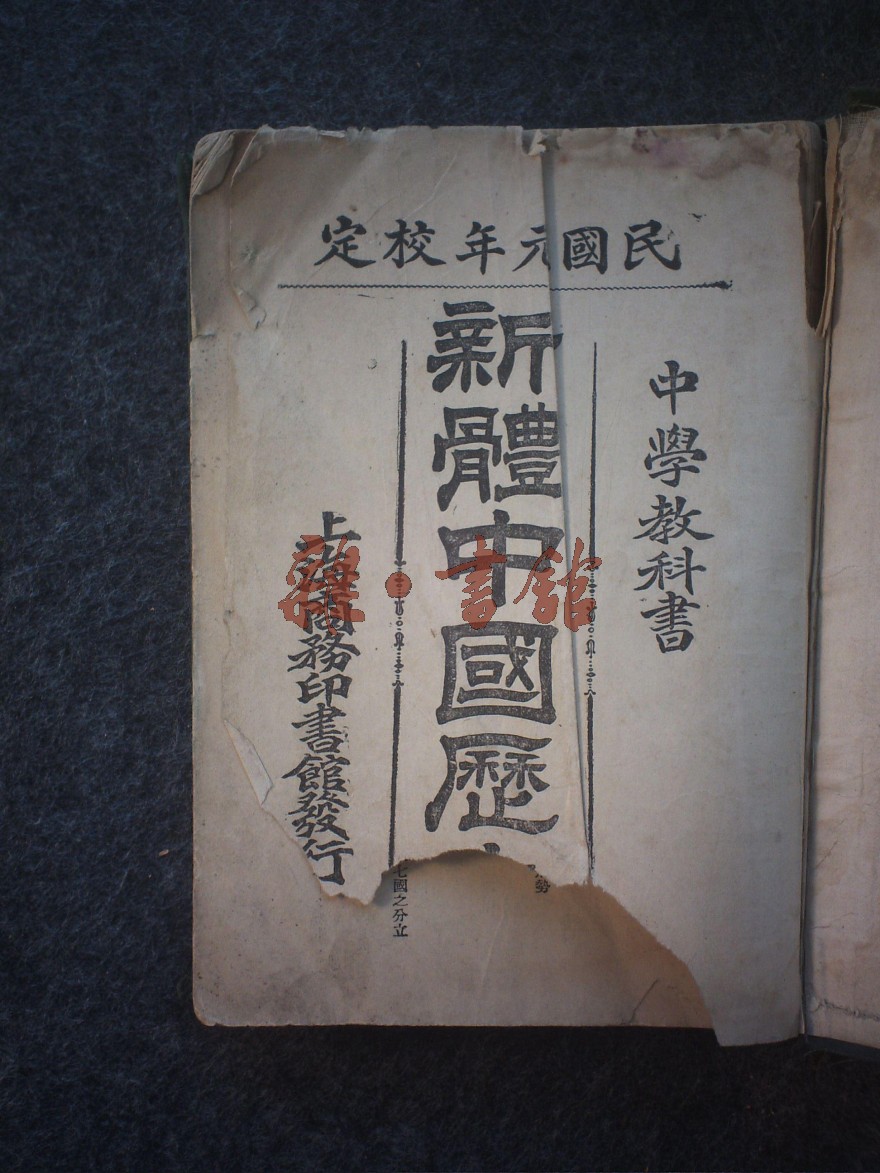 民國元年校定
中學教科書
新體中國歷
上海商務印書館發行
勢
七國之分立
書館